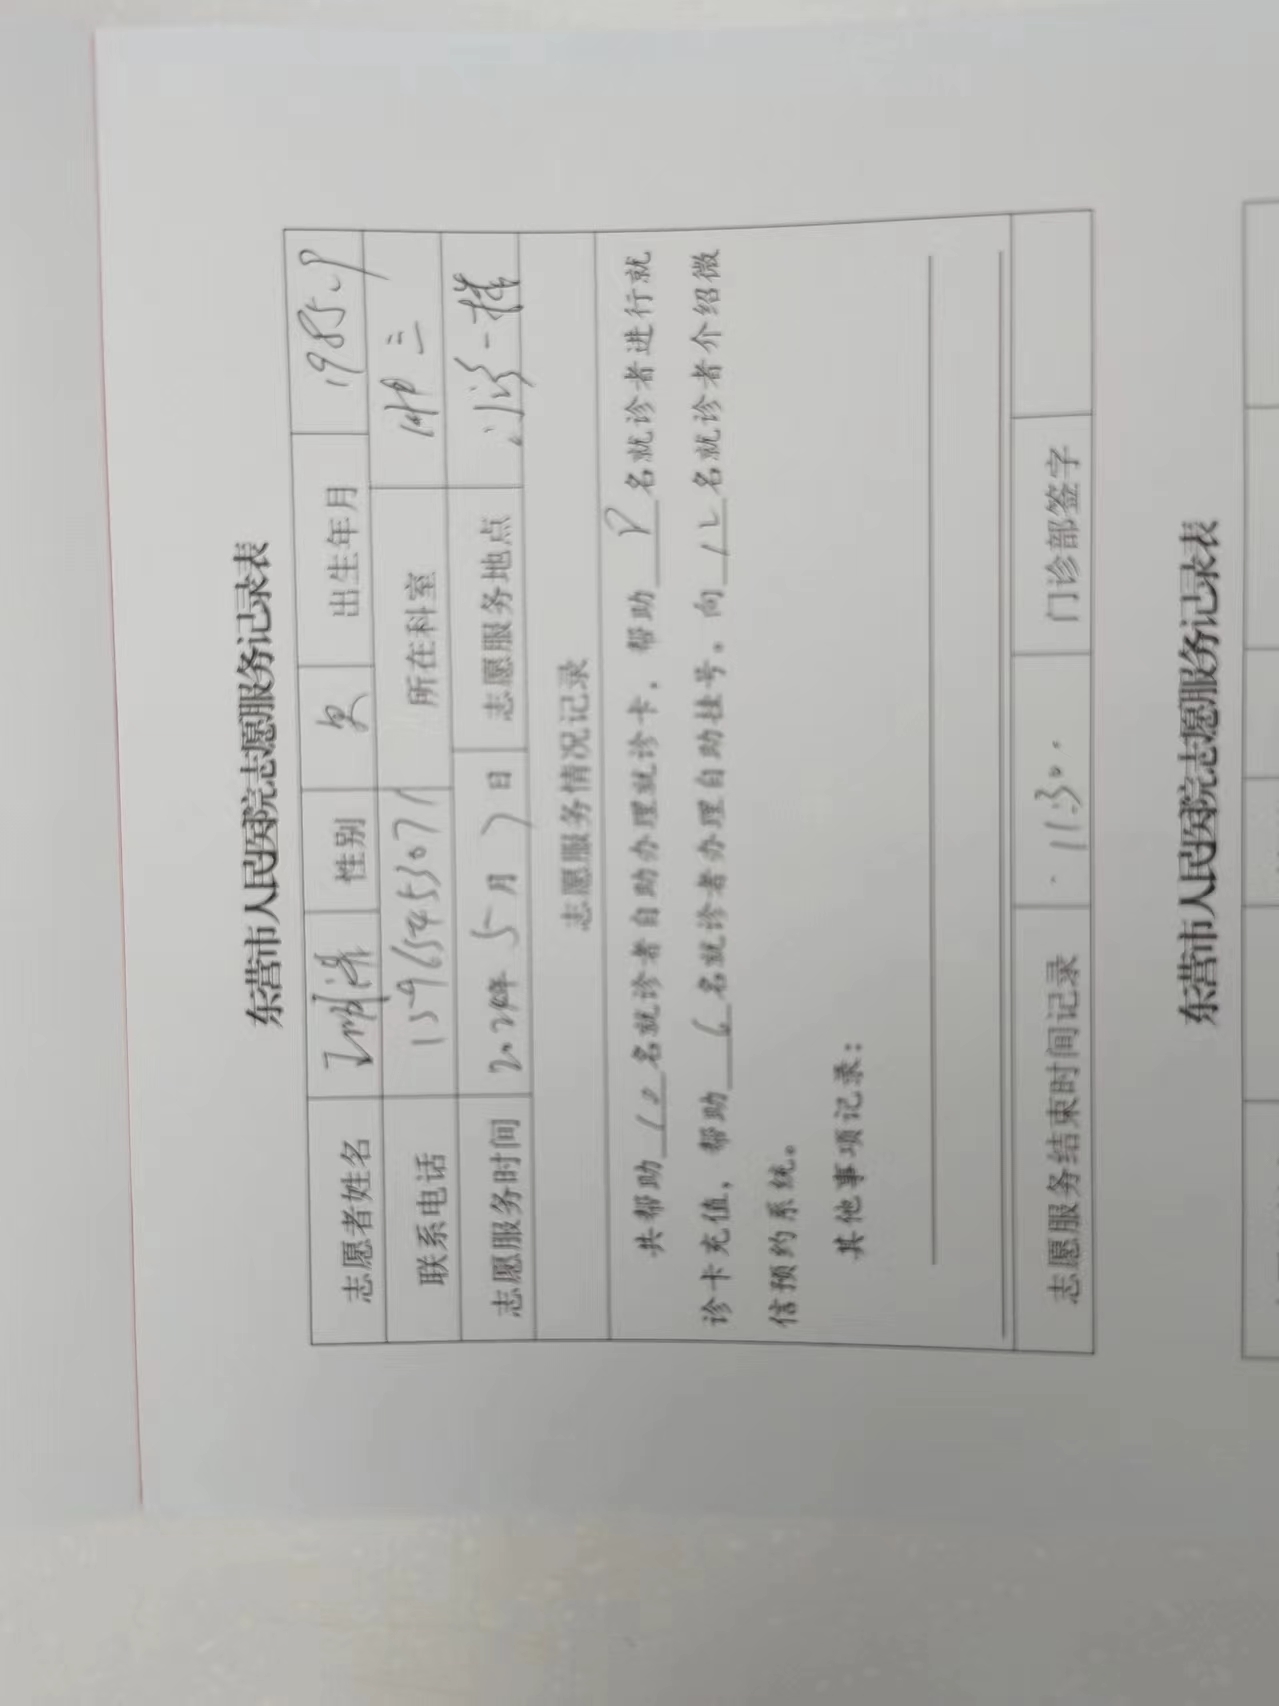 东营市人民医院志愿服务记录表
志愿者姓名 王 性别 女 出生年月 1985.
联系电话 15965453071 所在科室 神三
志愿服务时间 2024年 5月 7日 志愿服务地点 门诊一楼
志愿服务情况记录
共帮助 10 名就诊者自助办理就诊卡，帮助 8 名就诊者进行就
诊卡充值，帮助 6 名就诊者办理自助挂号。向 12 名就诊者介绍微
信预约系统。
其他事项记录：
志愿服务结束时间记录 11:30. 门诊部签字
东营市人民医院志愿服务记录表